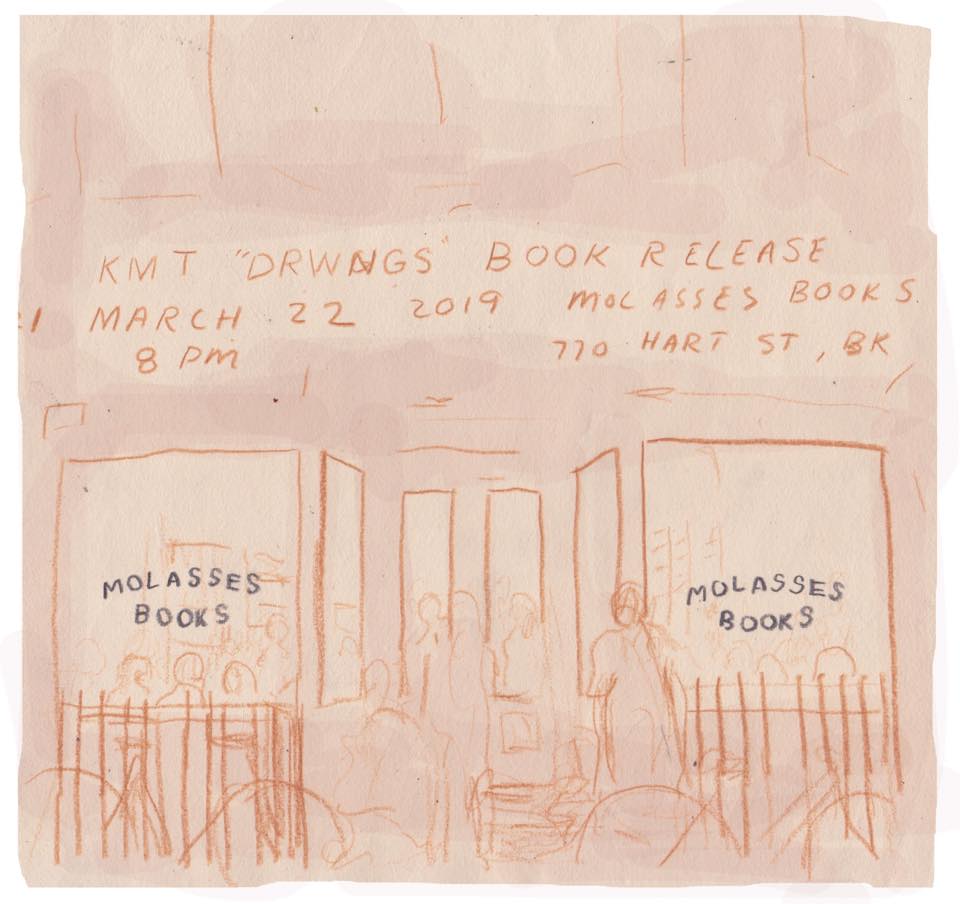 KMT "DRWNGS" BOOK RELEASE
MARCH 22 2019 MOLASSES BOOKS
8 PM 770 HART ST, BK
MOLASSES
BOOKS
MOLASSES
BOOKS